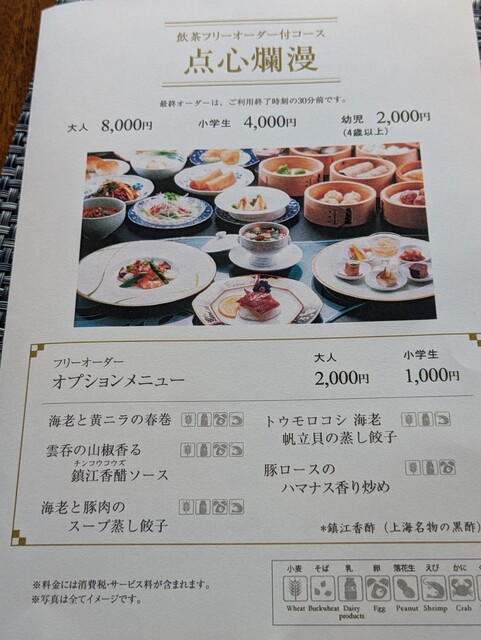 飲茶フリーオーダー付コース
点心爛漫
最終オーダーは、ご利用終了時刻の30分前です。
大人 8,000円 小学生 4,000円 幼児 2,000円
(4歳以上)
フリーオーダー 大人 小学生
オプションメニュー 2,000円 1,000円
海老と黄ニラの春巻
雲呑の山椒香る
チンコウコウズ
鎮江香醋ソース
海老と豚肉の
スープ蒸し餃子
トウモロコシ 海老
帆立貝の蒸し餃子
豚ロースの
ハマナス香り炒め
*鎮江香酢（上海名物の黒酢）
※料金には消費税・サービス料が含まれます。
※写真は全てイメージです。
小麦 そば 乳 卵 落花生 えび かに
Wheat Buckwheat Dairy products Egg Peanut Shrimp Crab